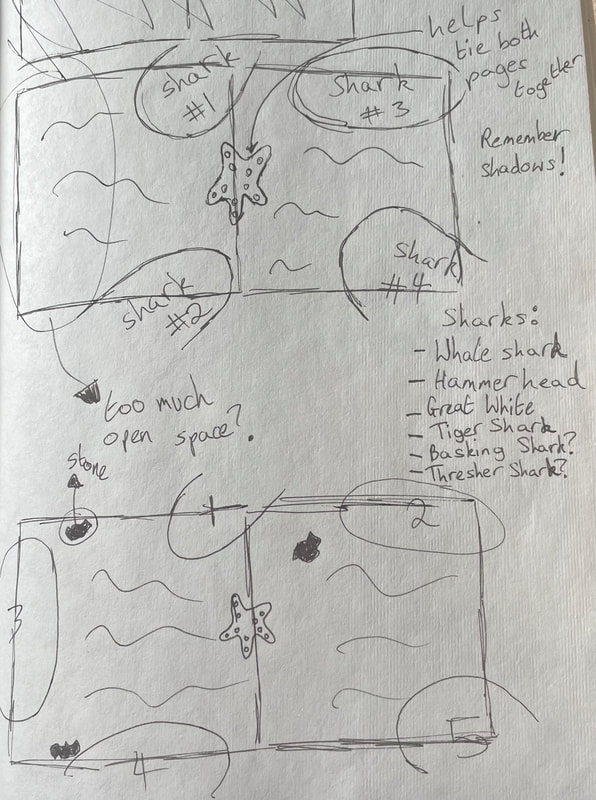 helps
tie both
pages
together
shark
#1
shark
#3
Remember
shadows!
shark
#2
shark
#4
too much
open space?
Sharks:
- Whale shark
- Hammerhead
- Great White
- Tiger Shark
- Basking Shark?
- Thresher Shark?
stone
1
2
3
4
5